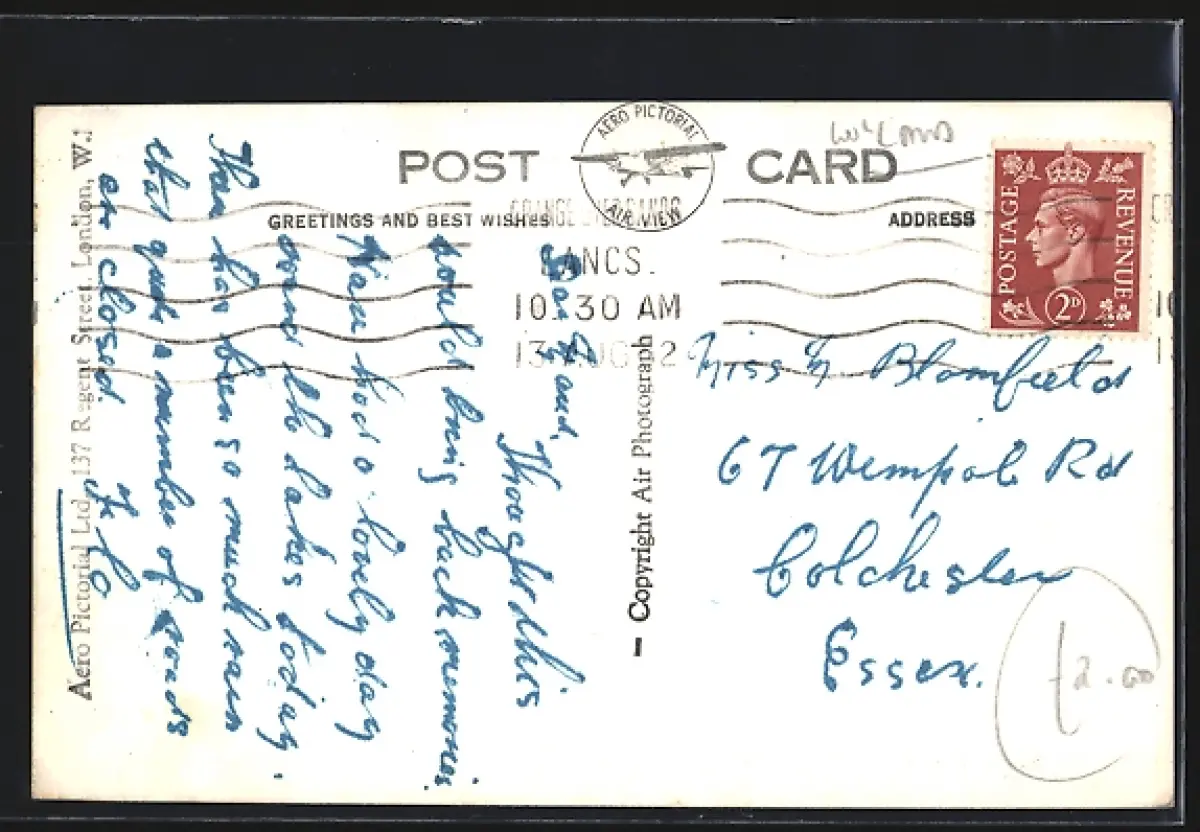 POST CARD
AERO PICTORIAL
AIR VIEW
GREETINGS AND BEST WISHES
ADDRESS
LANCS.
10.30 AM
13 AUG 2
POSTAGE
REVENUE
2D
Thought this
would bring back memories.
Have had a lovely day
over the Lakes today.
There has been so much rain
that quite a number of roads
are closed.
Miss M. Blomfield
67 Wimpole Rd
Colchester
Essex.
— Copyright Air Photograph
Aero Pictorial Ltd., 137 Regent Street, London, W.1
£2.00